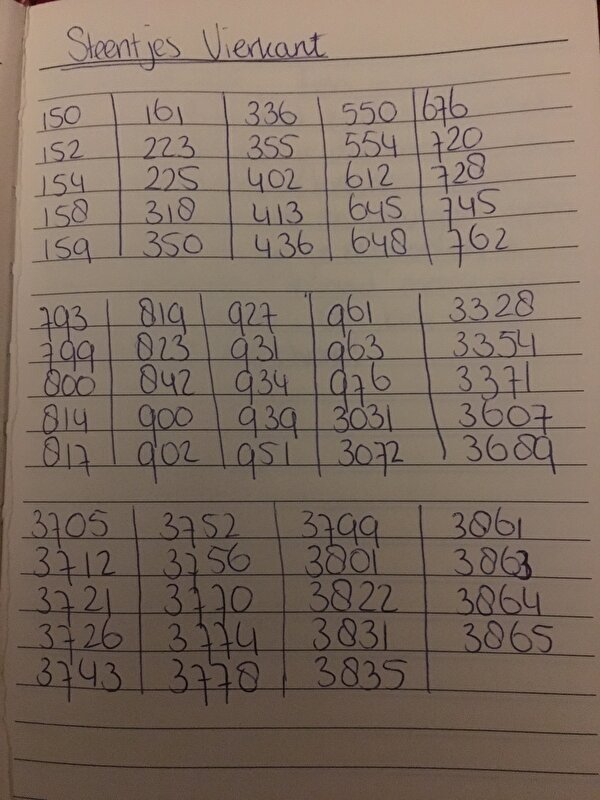 Steentjes Vierkant
150 161 336 550 676
152 223 355 554 720
154 225 402 612 728
158 318 413 645 745
159 350 436 648 762
793 819 927 961 3328
799 823 931 963 3354
800 842 934 976 3371
814 900 939 3031 3607
817 902 951 3072 3689
3705 3752 3799 3861
3712 3756 3801 3863
3721 3770 3822 3864
3726 3774 3831 3865
3743 3778 3835